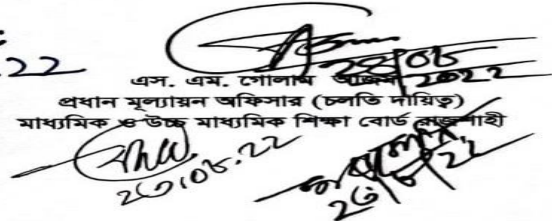 .22
২৪/০৮/2022
এস. এম. গোলাম আজম
প্রধান মূল্যায়ন অফিসার (চলতি দায়িত্ব)
মাধ্যমিক ও উচ্চ মাধ্যমিক শিক্ষা বোর্ড রাজশাহী
২৩/০৮/22
২৩.০৮.22